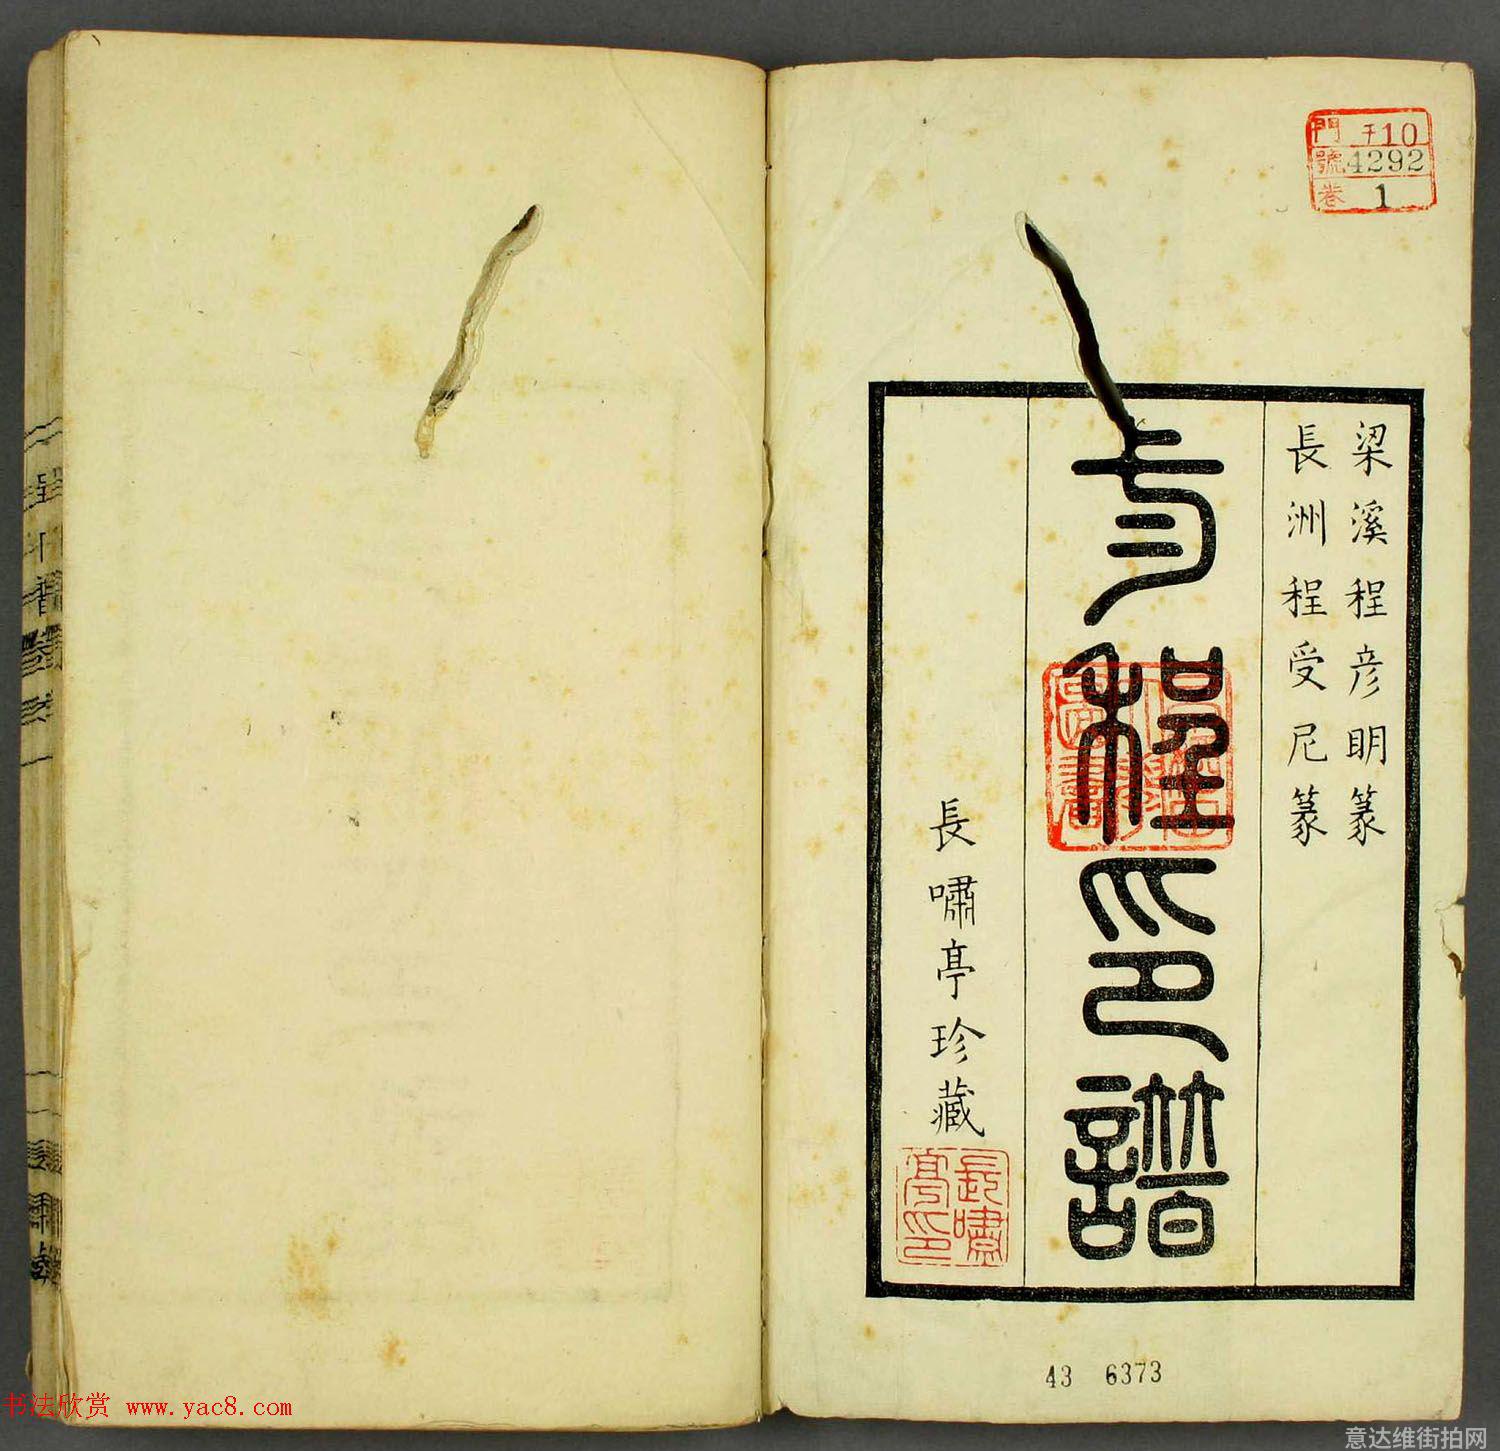 門 チ10
號 4292
卷 1
梁溪程彦明篆
長洲程受尼篆
弍程印譜
長嘯亭珍藏
長嘯
亭印
43 6373
书法欣赏 www.yac8.com
意达维街拍网